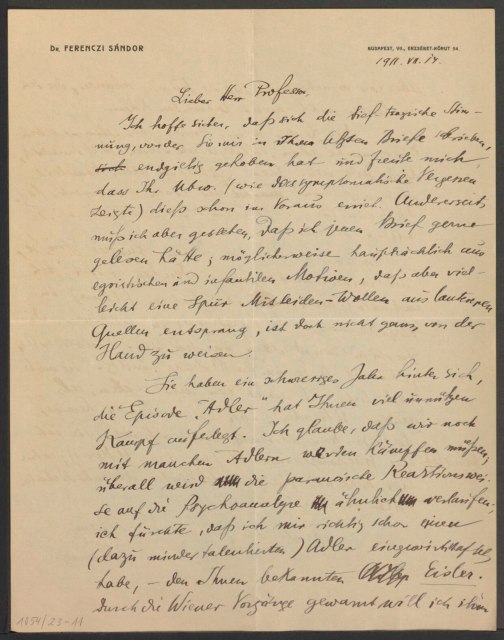 DR. FERENCZI SÁNDOR
BUDAPEST, VII., ERZSÉBET-KÖRUT 54.
1911. VII. 14.
Lieber Herr Professor,
Ich hoffe sicher, daß sich die tief tragische Stim-
mung, von der Sie mir in Ihrem letzten Briefe schrieben,
endgiltig gehoben hat und freute mich,
dass Ihr Ubw. (wie das symptomatische Vergessen
zeigte) dieß schon im Voraus erriet. Andererseits
muß ich aber gestehen, daß ich jenen Brief gerne
gelesen hätte; möglicherweise hauptsächlich aus
egoistischen und infantilen Motiven, daß aber viel-
leicht eine Spur Mitleiden-Wollen aus lauteren
Quellen entsprang, ist doch nicht ganz von der
Hand zu weisen.
Sie haben ein schwieriges Jahr hinter sich,
die Episode „Adler" hat Ihnen viel unnützen
Kampf auferlegt. Ich glaube, daß wir noch
mit manchen Adlern werden kämpfen müssen,
überall wird die paranoische Reaktionswei-
se auf die Psychoanalyse ähnlich verlaufen.
ich fürchte, daß ich mir richtig schon einen
(dazu minder talentierten) Adler eingewirtschaftet
habe, – den Ihnen bekannten Eisler.
Durch die Wiener Vorgänge gewarnt will ich ihm
1154/23-11